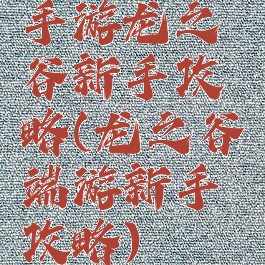 手游龙之
谷新手攻
略(龙之谷
端游新手
攻略)